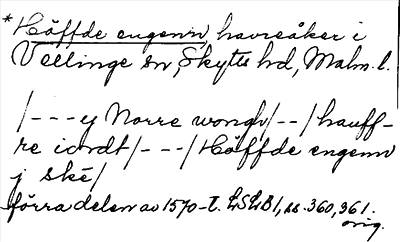 * Höffde engenn, havreåker i
Vellinge sn, Skytts hd, Malm. l.
/---y Norre wongh/--/hauff-
re iordt/---/Höffde engenn
j skè/
förra delen av 1570-t. LSLB1, ss. 360, 361.
orig.